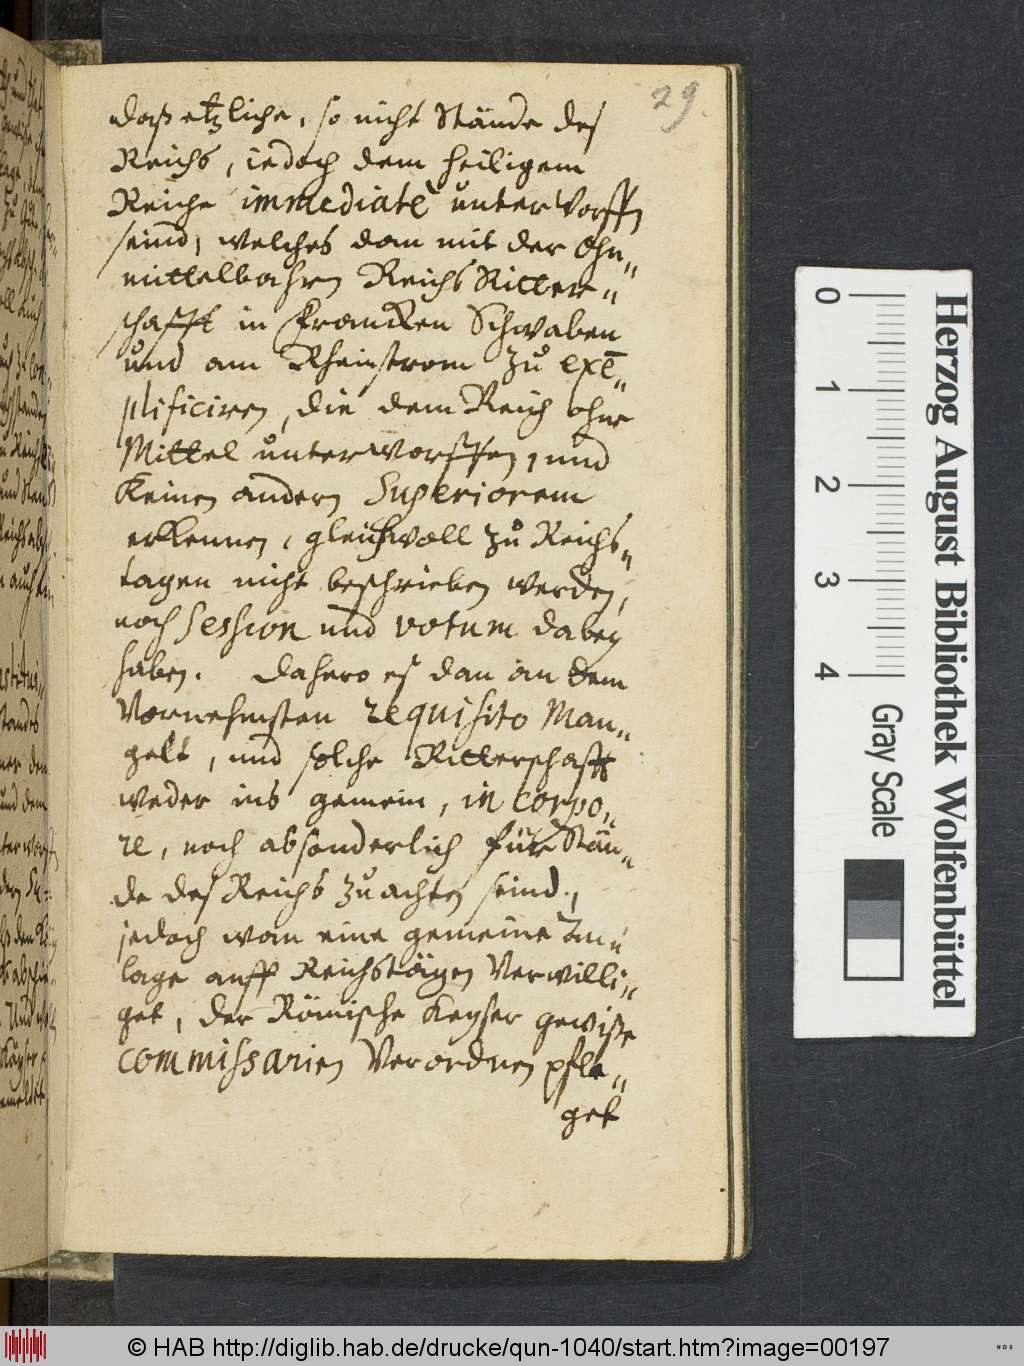 29.
daß etzliche, so nicht Stände des
Reichs, iedoch dem heiligem
Reiche immediatè unterworffen
seind, welches dan mit der Ohn-
mittelbahren Reichs Ritter-
schafft in Francken Schwaben
und am Rheinstrom zu exē-
plificiren, die dem Reich ohne
Mittel unterworffen, und
keinen andern Superiorem
erkennen, gleichwoll zu Reichs-
tagen nicht beschrieben werden,
noch Session und votum dabey
haben. Dahero es dan an dem
Vornehmsten requisito Man-
gelt, und solche Ritterschafft
weder ins gemein, in corpo-
re, noch absonderlich für Stän-
de des Reichs zu achten seind,
jedoch wan eine gemeine An-
lage auff Reichstägen Verwilli-
get, der Römische Keyser gewiße
Commissarien Verordnen pfle-
get
0
1
2
3
4
Herzog August Bibliothek Wolfenbüttel
Gray Scale
© HAB http://diglib.hab.de/drucke/qun-1040/start.htm?image=00197